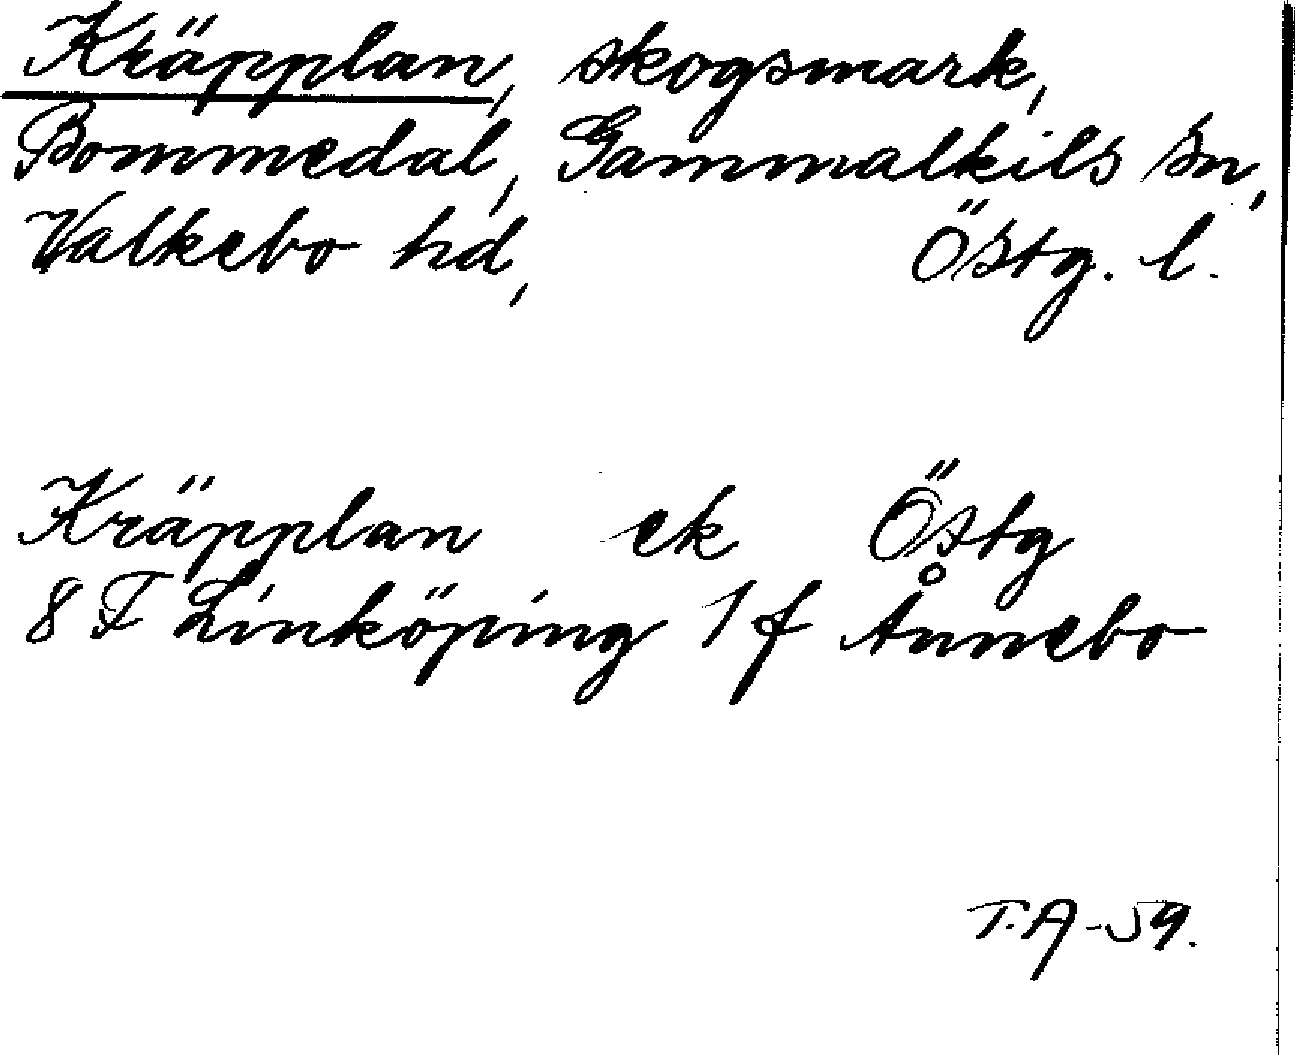 Kräpplan, skogsmark,
Bommedal, Gammalkils sn,
Valkebo hd, Östg. l.
Kräpplan ek Östg
8 F Linköping 1 f Ånnebo
T.A-59.